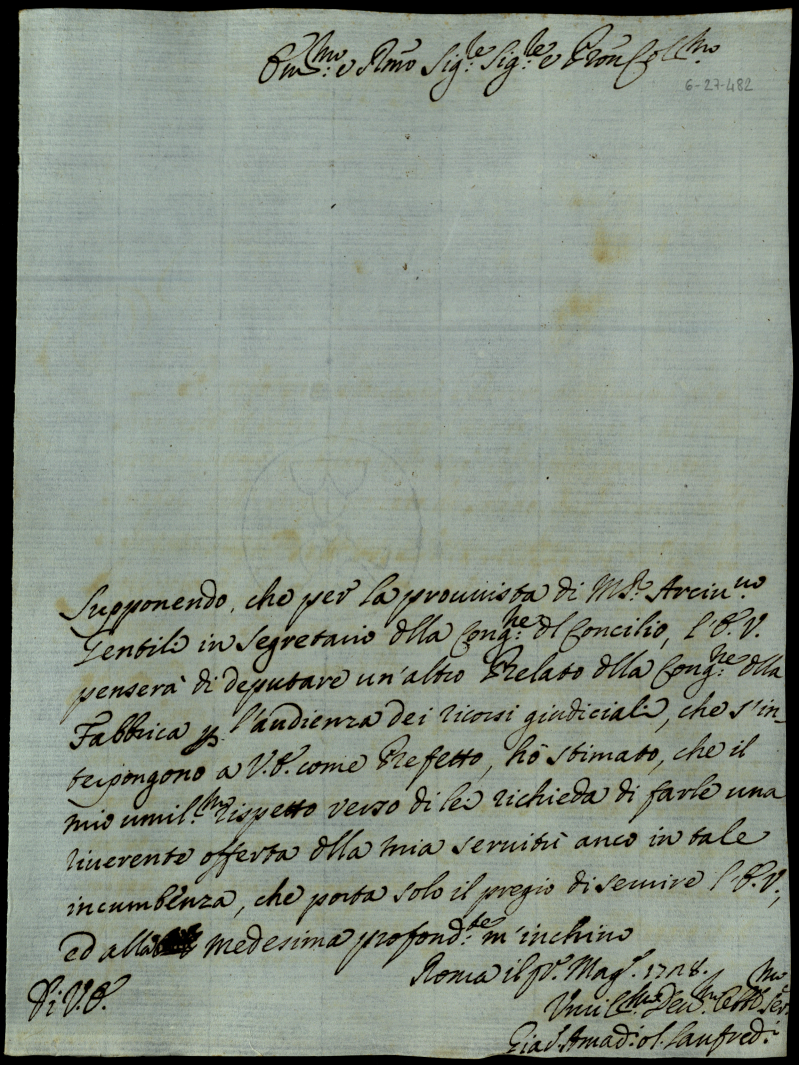 Em.mo e Rmo Sig.re Sig.re e Pron Col.mo
6-27-482
Supponendo, che per la prouuista di Ms.r Arciu.uo
Gentili in Segretario dlla Cong.ne dl Concilio, l'E.V.
penserà di deputare un'altro Prelato dlla Cong.ne dlla
Fabbrica p l'audienza dei ricorsi giudiciali, che s'in-
terpongono a V.E. come Prefetto, hò stimato, che il
mio umil.mo rispetto verso di lei richieda di farle una
riuerente offerta dlla mia seruitù anco in tale
incumbenza, che porta solo il pregio di seruire l'E.V.,
ed alla medesima profond.te m'inchino
Roma il pr. Mag. 1728.
Di V.E.
Umil.mo Deu.mo Obbl.mo Ser.
Gia. Amad. Lanfred.i